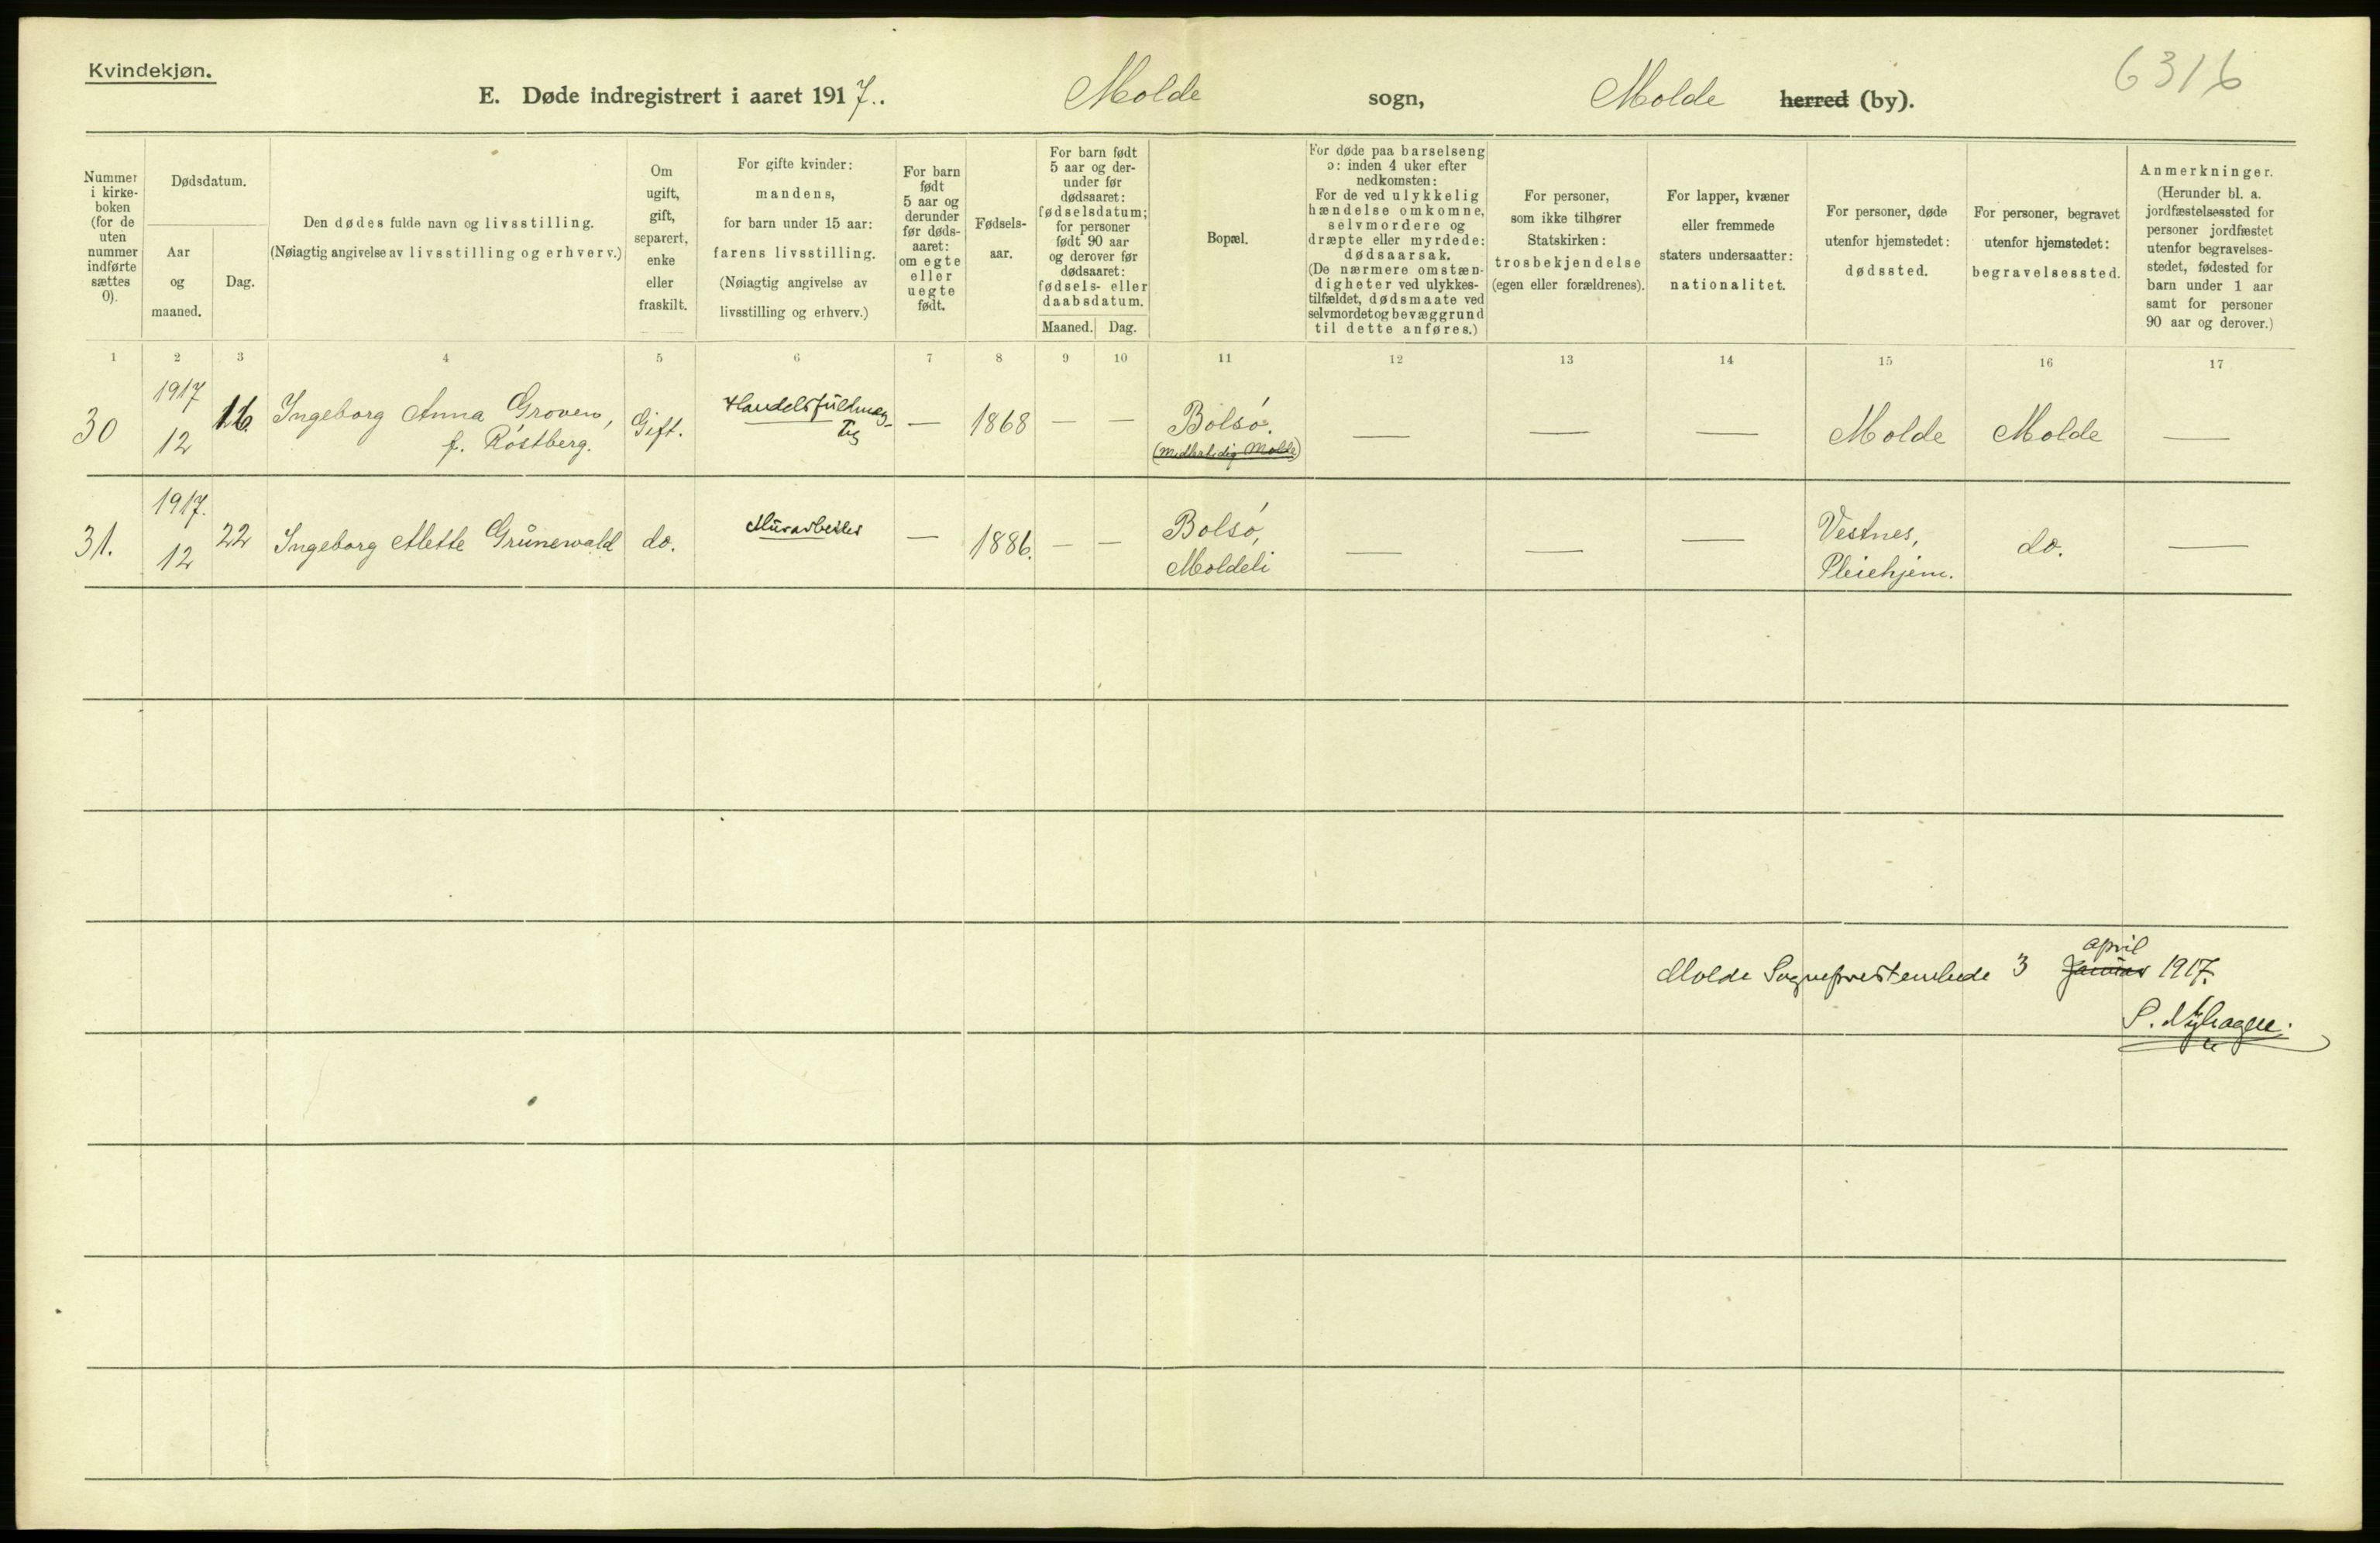 Kvindekjøn.
6316
E. Døde indregistrert i aaret 1917.. Molde sogn, Molde herred (by).
Nummer
i kirke-
boken
(for de
uten
nummer
indførte
sættes
0).
Dødsdatum.
Aar
og
maaned.
Dag.
Den dødes fulde navn og livsstilling.
(Nøiagtig angivelse av livsstilling og erhverv.)
Om
ugift,
gift,
separert,
enke
eller
fraskilt.
For gifte kvinder:
mandens,
for barn under 15 aar:
farens livsstilling.
(Nøiagtig angivelse av
livsstilling og erhverv.)
For barn
født
5 aar og
derunder
før døds-
aaret:
om egte
eller
uegte
født.
Fødsels-
aar.
For barn født
5 aar og der-
under før
dødsaaret:
fødselsdatum;
for personer
født 90 aar
og derover før
dødsaaret:
fødsels- eller
daabsdatum.
Maaned. Dag.
Bopæl.
For døde paa barselseng
ɔ: inden 4 uker efter
nedkomsten:
For de ved ulykkelig
hændelse omkomne,
selvmordere og
dræpte eller myrdede:
dødsaarsak.
(De nærmere omstæn-
digheter ved ulykkes-
tilfældet, dødsmaate ved
selvmordet og bevæggrund
til dette anføres.)
For personer,
som ikke tilhører
Statskirken:
trosbekjendelse
(egen eller forældrenes).
For lapper, kvæner
eller fremmede
staters undersaatter:
nationalitet.
For personer, døde
utenfor hjemstedet:
dødssted.
For personer, begravet
utenfor hjemstedet:
begravelsessted.
Anmerkninger.
(Herunder bl. a.
jordfæstelsessted for
personer jordfæstet
utenfor begravelses-
stedet, fødested for
barn under 1 aar
samt for personer
90 aar og derover.)
1 2 3 4 5 6 7 8 9 10 11 12 13 14 15 16 17
30
1917
12
16.
Ingeborg Anna Groven,
f. Röstberg.
Gift.
Handelsfuldmeg-
tig
—
1868
— —
Bolsö.
(Midlertidig Molde)
— — —
Molde
Molde
—
31.
1917.
12
22
Ingeborg Mette Grünewald
do.
Murarbeider
—
1886.
— —
Bolsö,
Moldeli
— — —
Vestnes,
Pleiehjem.
do.
—
april
Molde Sogneprestembede 3 Januar 1917.
S. Nyhagen.